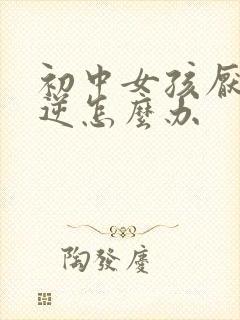 初中女孩厌
逆怎麽办
陶發慶